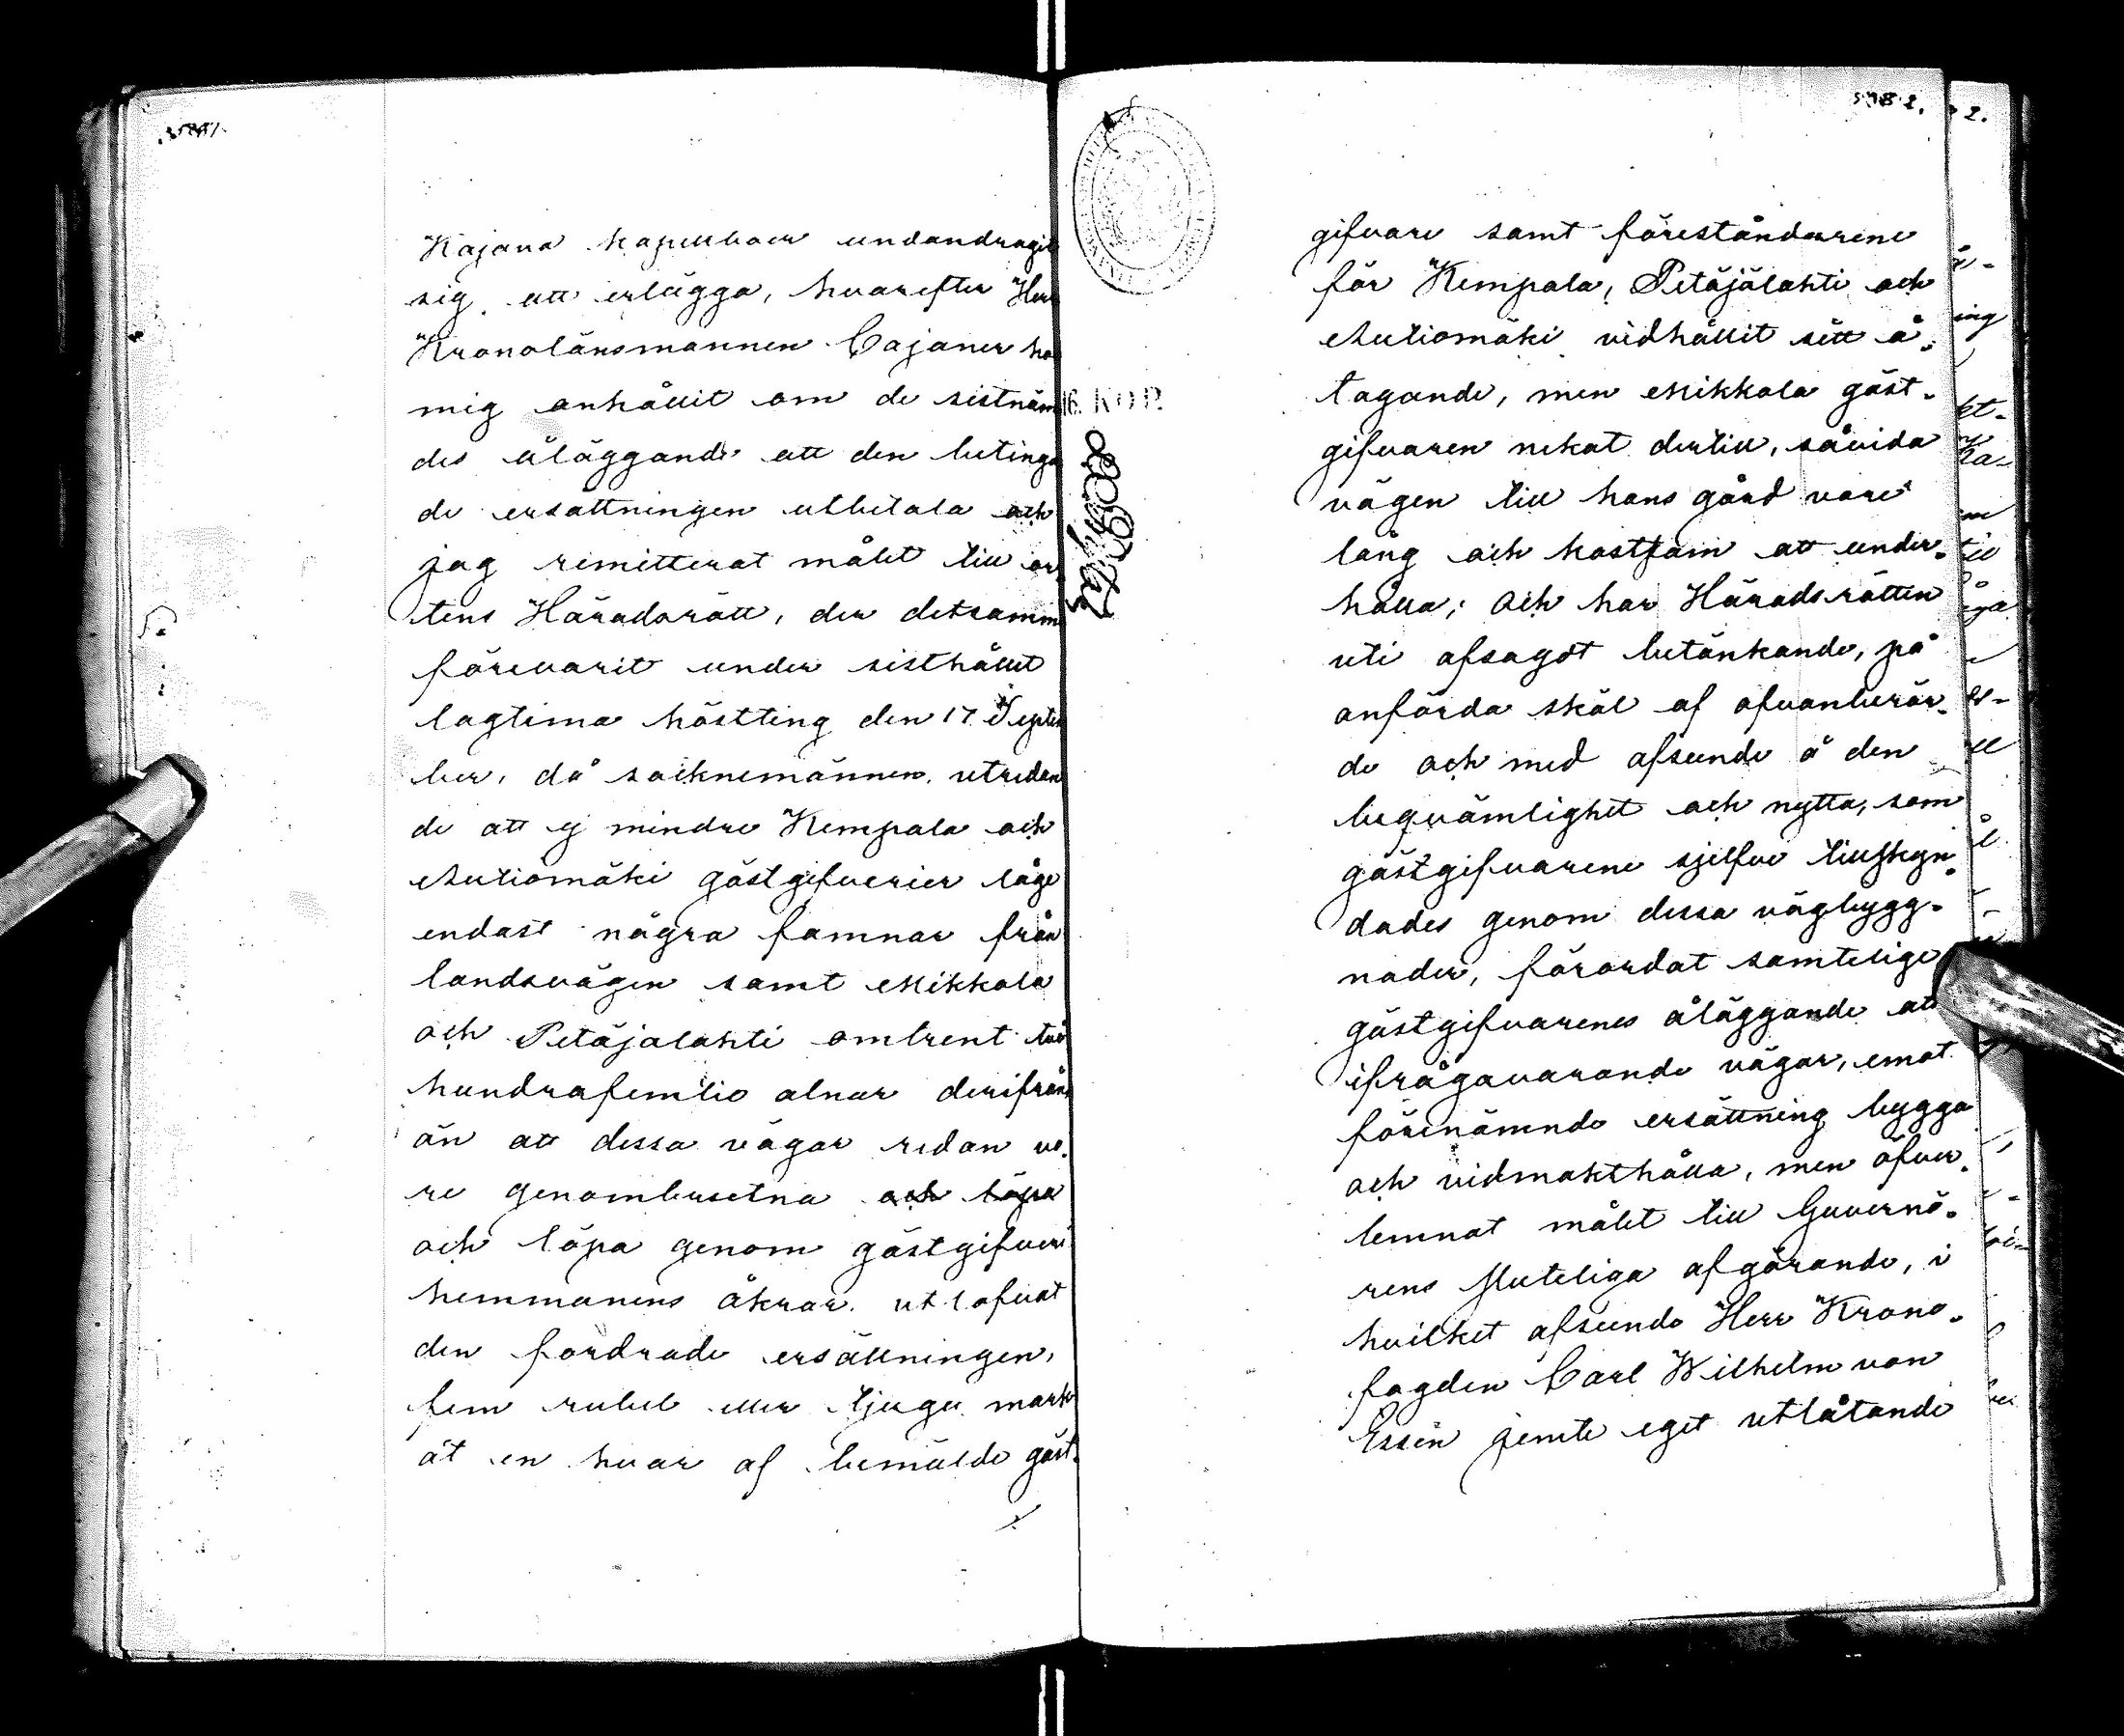 Kajana kapellboer undandragit
sig att erlägga, hvarefter Herr
Kronolänsmannen Cajaner ho
mig anhållit om de sistnäm
des åläggande att den betinga
de ersättningen utbetala och
jag remitterat målet till or
tens Häradsrätt, der detsamm
förevarit under sisthållit
lagtima höstting den 17 Septem
ber, då socknemännen, utredan
de att ej mindre Kempala och
Autiomäki gästgifverier låge
endast några famnar från
landsvägen samt Mikkola
och Petäjälahti omtrent två
hundrafemtio alnar derifrån,
än att dessa vägar redan vo.
re genombrutna och löpa
och löpa genom gästgifveri
hemmanens åkrar, utlofvat
den fordrade ersättningen,
fem rubel eller tjugu mark
åt en hvar af bemälde gäst.
gifvare samt föreståndarene
för Kempala, Petäjälahti och
Autiomäki vidhållit sitt å.
tagande, men Mikkola gäst-
gifvaren nekat dertill, såvida
vägen till hans gård vore
lång och kostsam att under.
hålla; Och har Häradsrätten
uti afsagdt betänkande, på
anförda skäl af ofvanberör.
de och med afseende å den
beqvämlighet och nytta, som
gästgifvarene sjelfve tillskyn.
dades genom dessa vägbygg-
nader, förordat samtelige
gästgifvarenes åläggande att
ifrågavarande vägar, emot
förenämnde ersättning bygga
och vidmakthålla, men öfver.
lemnat målet till Guvernö.
rens slutliga afgörande, i
hvilket afseende Herr Krono.
fogden Carl Wilhelm von
Essen jemte eget utlåtande
16. KOP.